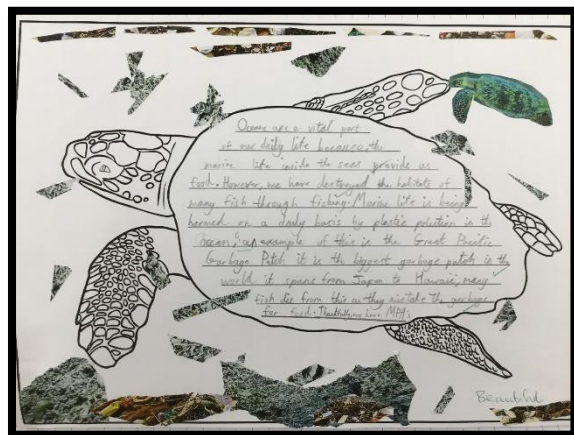 Oceans are a vital part
of our daily life because, the
marine life inside the seas provide us
food. However, we have destroyed the habitats of
many fish through fishing. Marine life is being
harmed on a daily basis by plastic polution in the
Ocean, an example of this is the Great Pacific
Garbage Patch it is the biggest garbage patch in the
world it spans from Japan to Hawaii, many
fish die from this as they mistake the garbage
for food. Thankfully we have MPA's
Beautiful